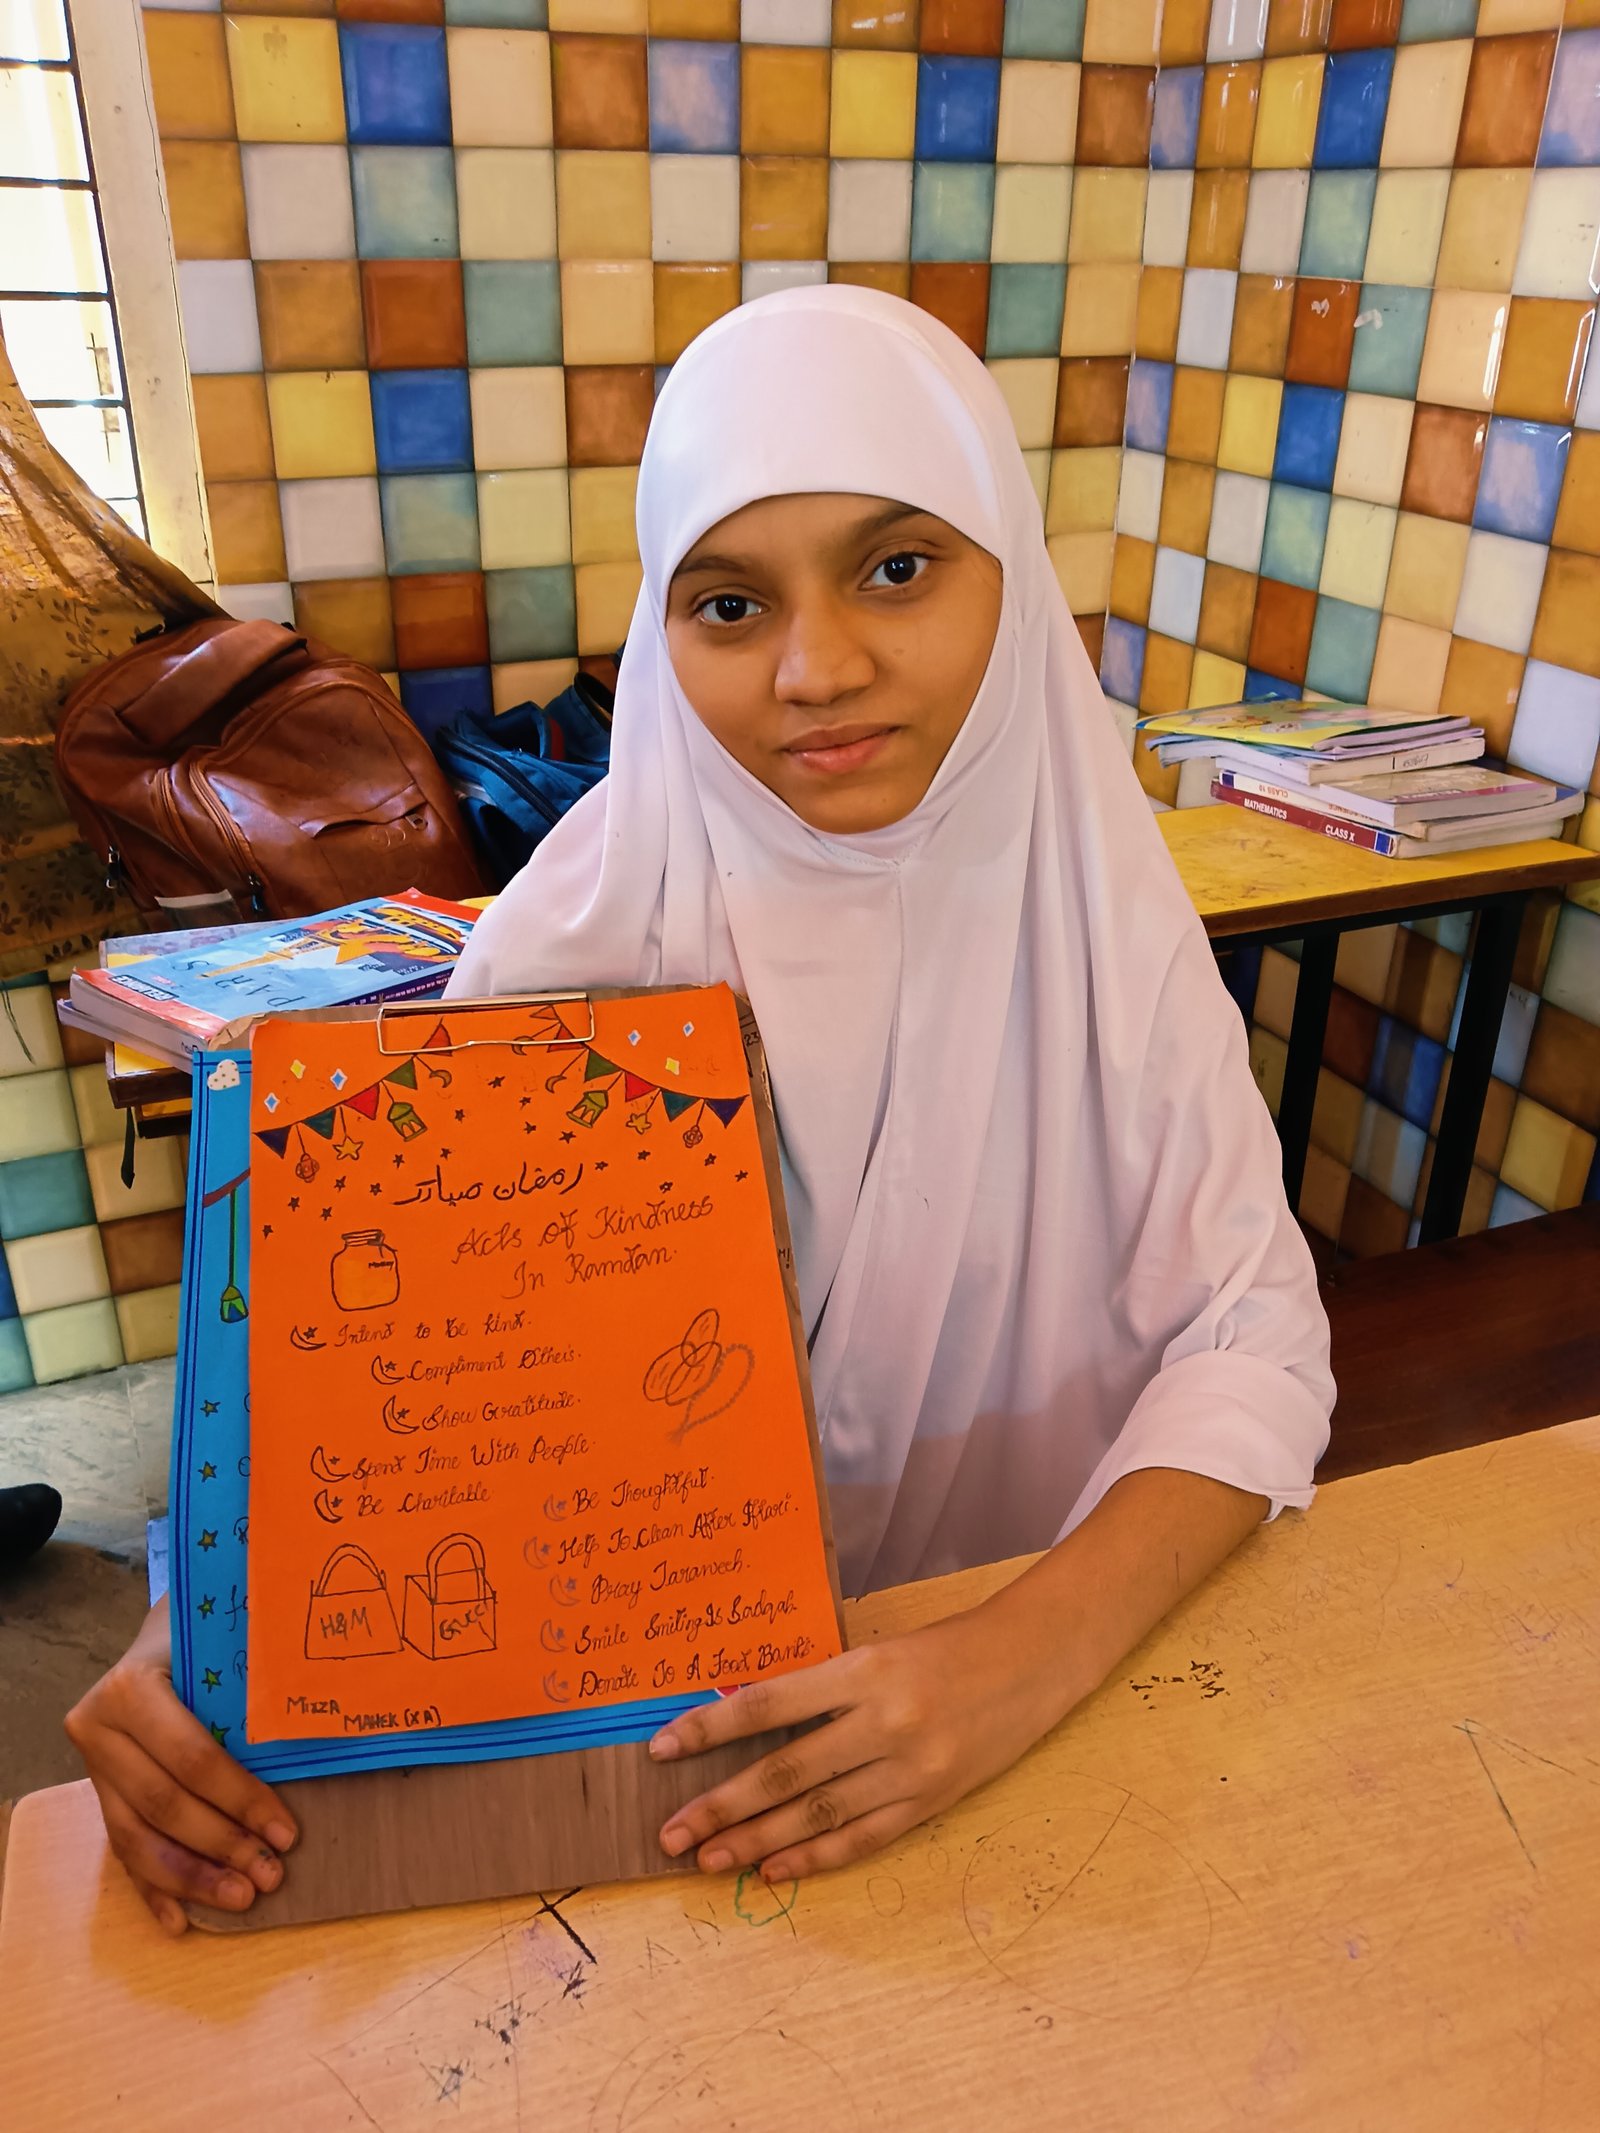 رمضان مبارک
Acts of Kindness
In Ramdan.
Money
Intend to be kind.
Compliment Others.
Show Gratitude.
Spend Time With People.
Be Charitable
Be Thoughtful.
Help To Clean After Iftari.
Pray Taraweeh.
Smile Smiling Is Sadqah
Donate To A Food Banks.
H&M
GUCCI
MIRZA
MAHEK (X A)
PARIS
MATHEMATICS
CLASS X
CLASS 10